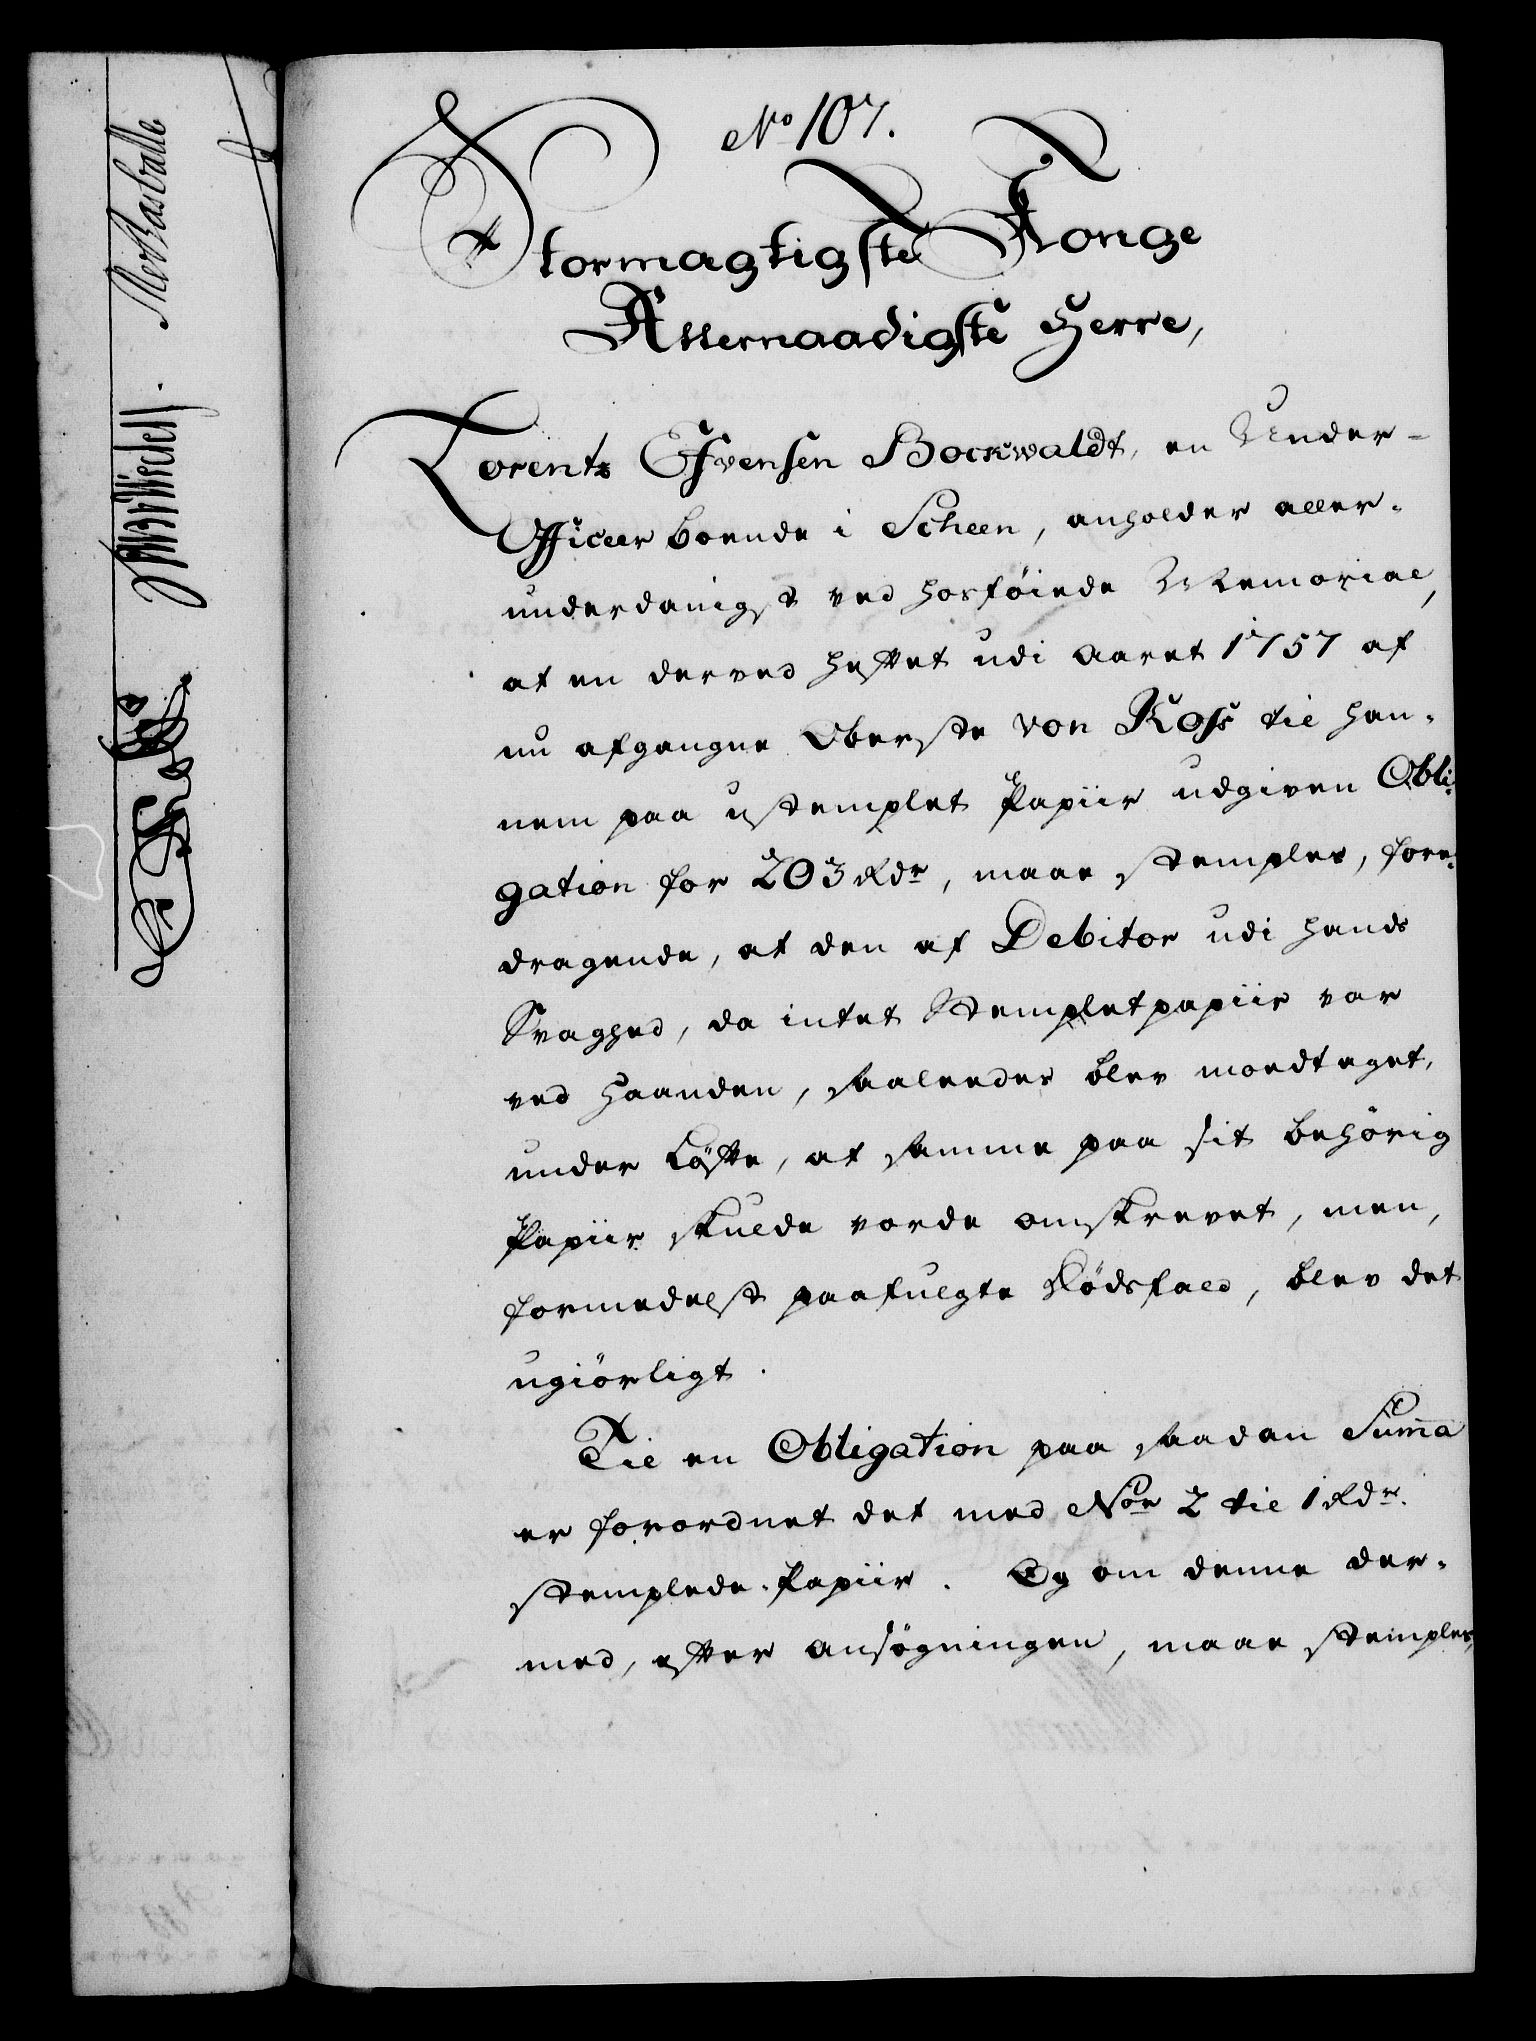 No 107.
Stormægtigste Konge
Allernaadigste Herre,
Lorentz Efvensen Bockwaldt, en Under-
Officeer boende i Scheen, anholder aller-
underdanigst ved hosföiede Memorial,
at en derved heftet udi Aaret 1757 af
nu afgangne Oberste von Roſs til han-
nem paa ustemplet Papiir udgiven Obli-
gation for 203 Rdr, maae stemples, fore-
dragende, at den af Debitor udi hands
Svaghed, da intet Stempletpapiir var
ved Haanden, saaleedes blev modtaget,
under Löfte, at samme paa sit behörig
Papiir skulde vorde omskrevet, men,
formedelst paafulgte Dödsfald, blev det
ugiörligt.
Til en Obligation paa saadan Summa
er forordnet det med Nor 2 til 1 Rdr.
stemplede Papiir. Og om denne der-
med, efter Ansögningen, maae stemples